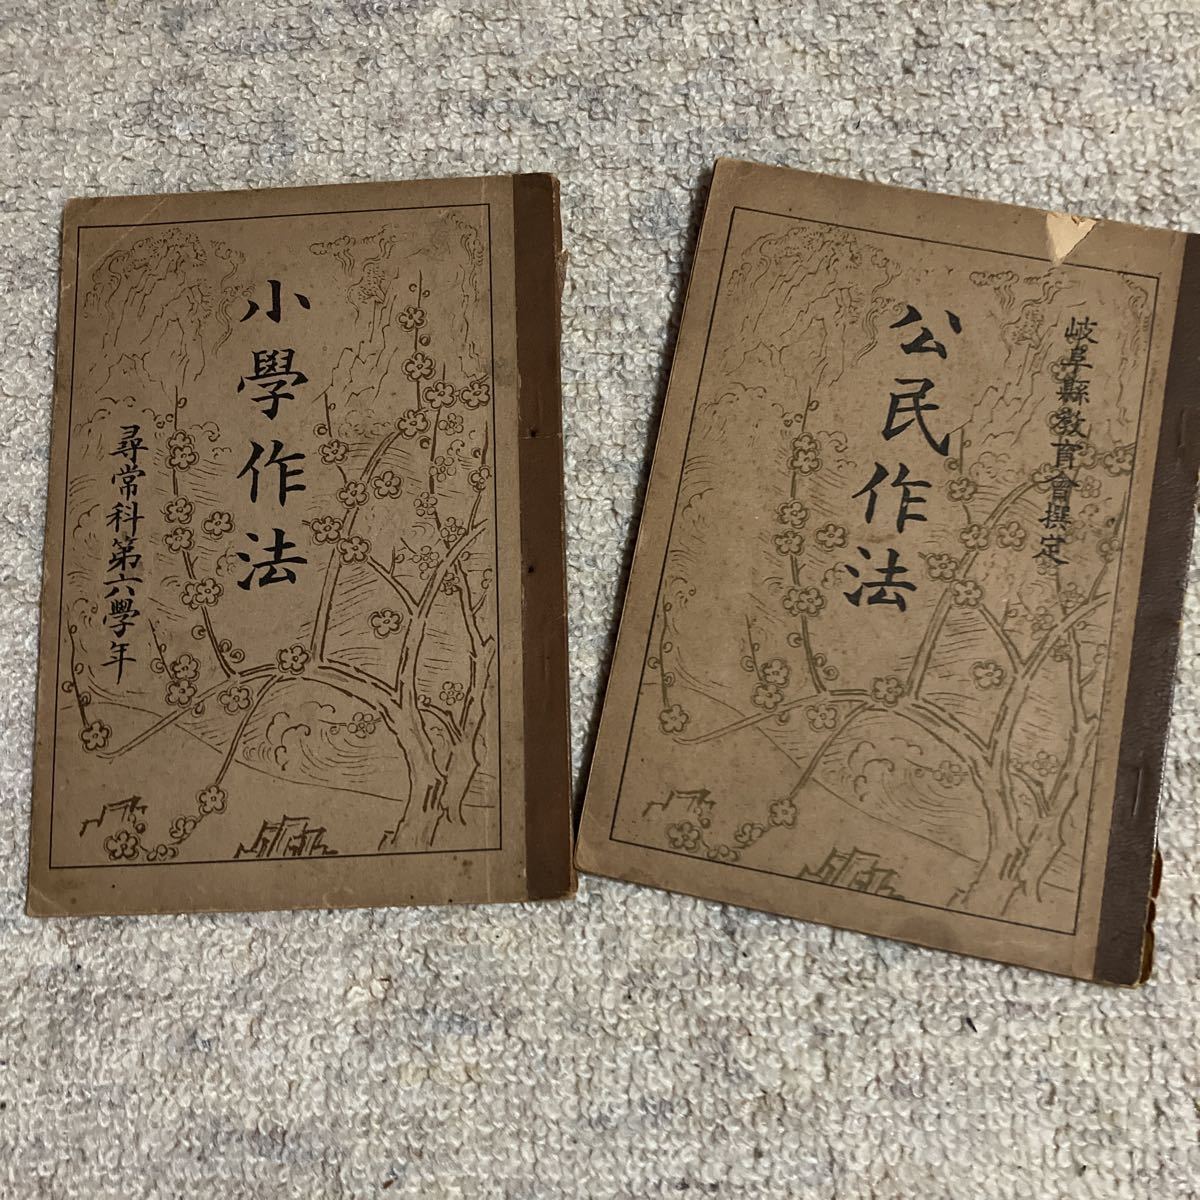 小學作法
尋常科第六學年
岐阜縣教育會撰定
公民作法